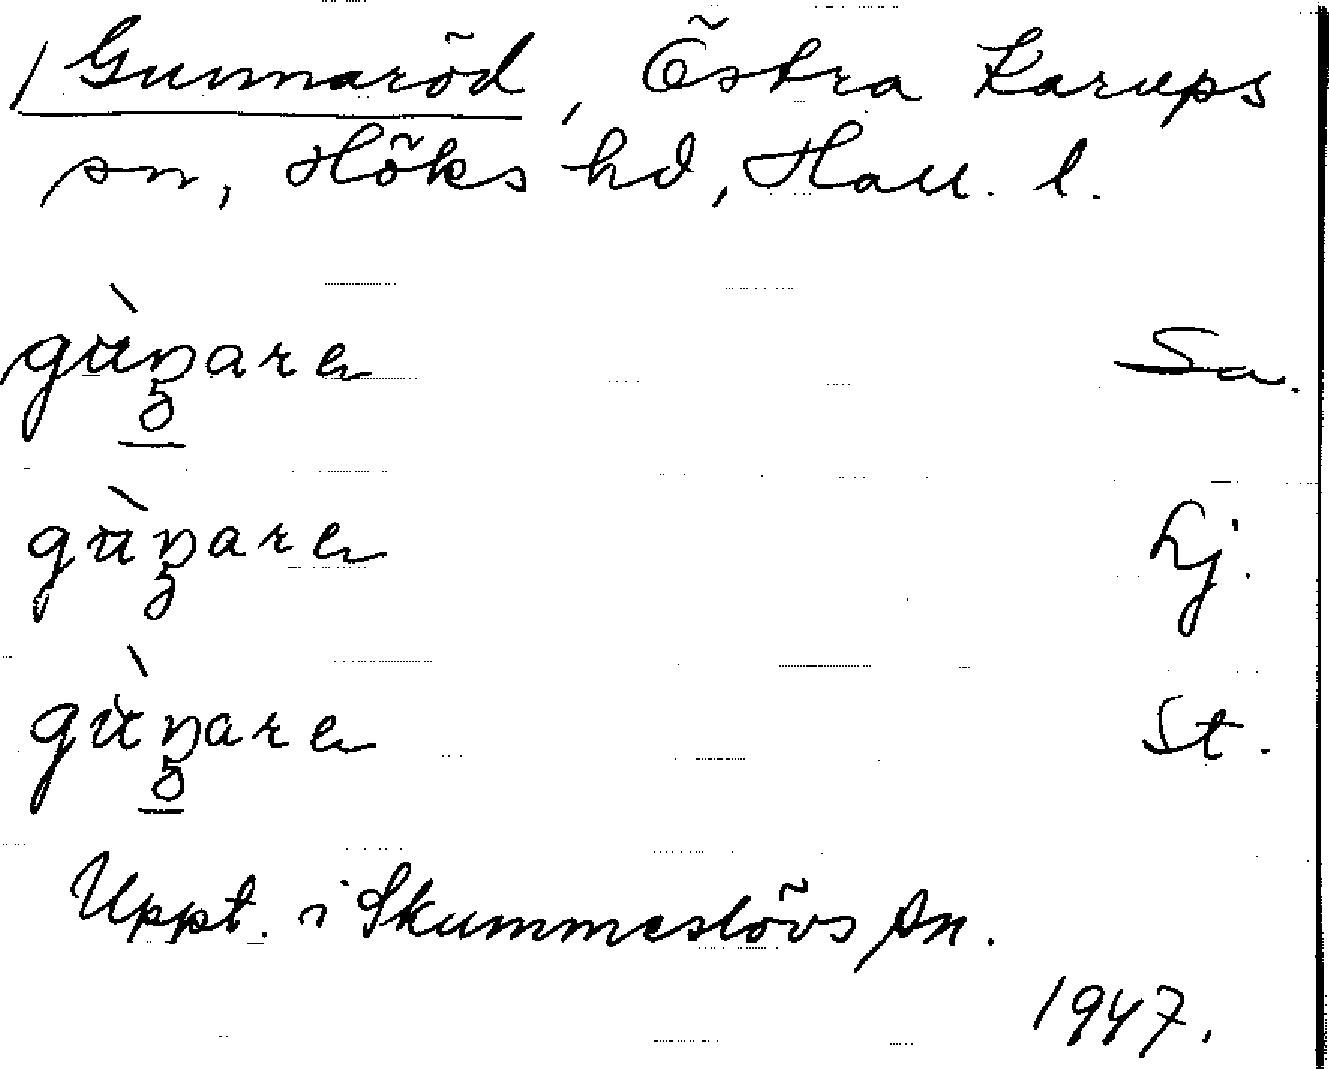 / Gunnaröd, Östra Karups
sn, Höks hd, Hall. l.
gùnare Sa.
gùnare hj.
gùnare St.
Uppt. i Skummeslövs sn.
1947.